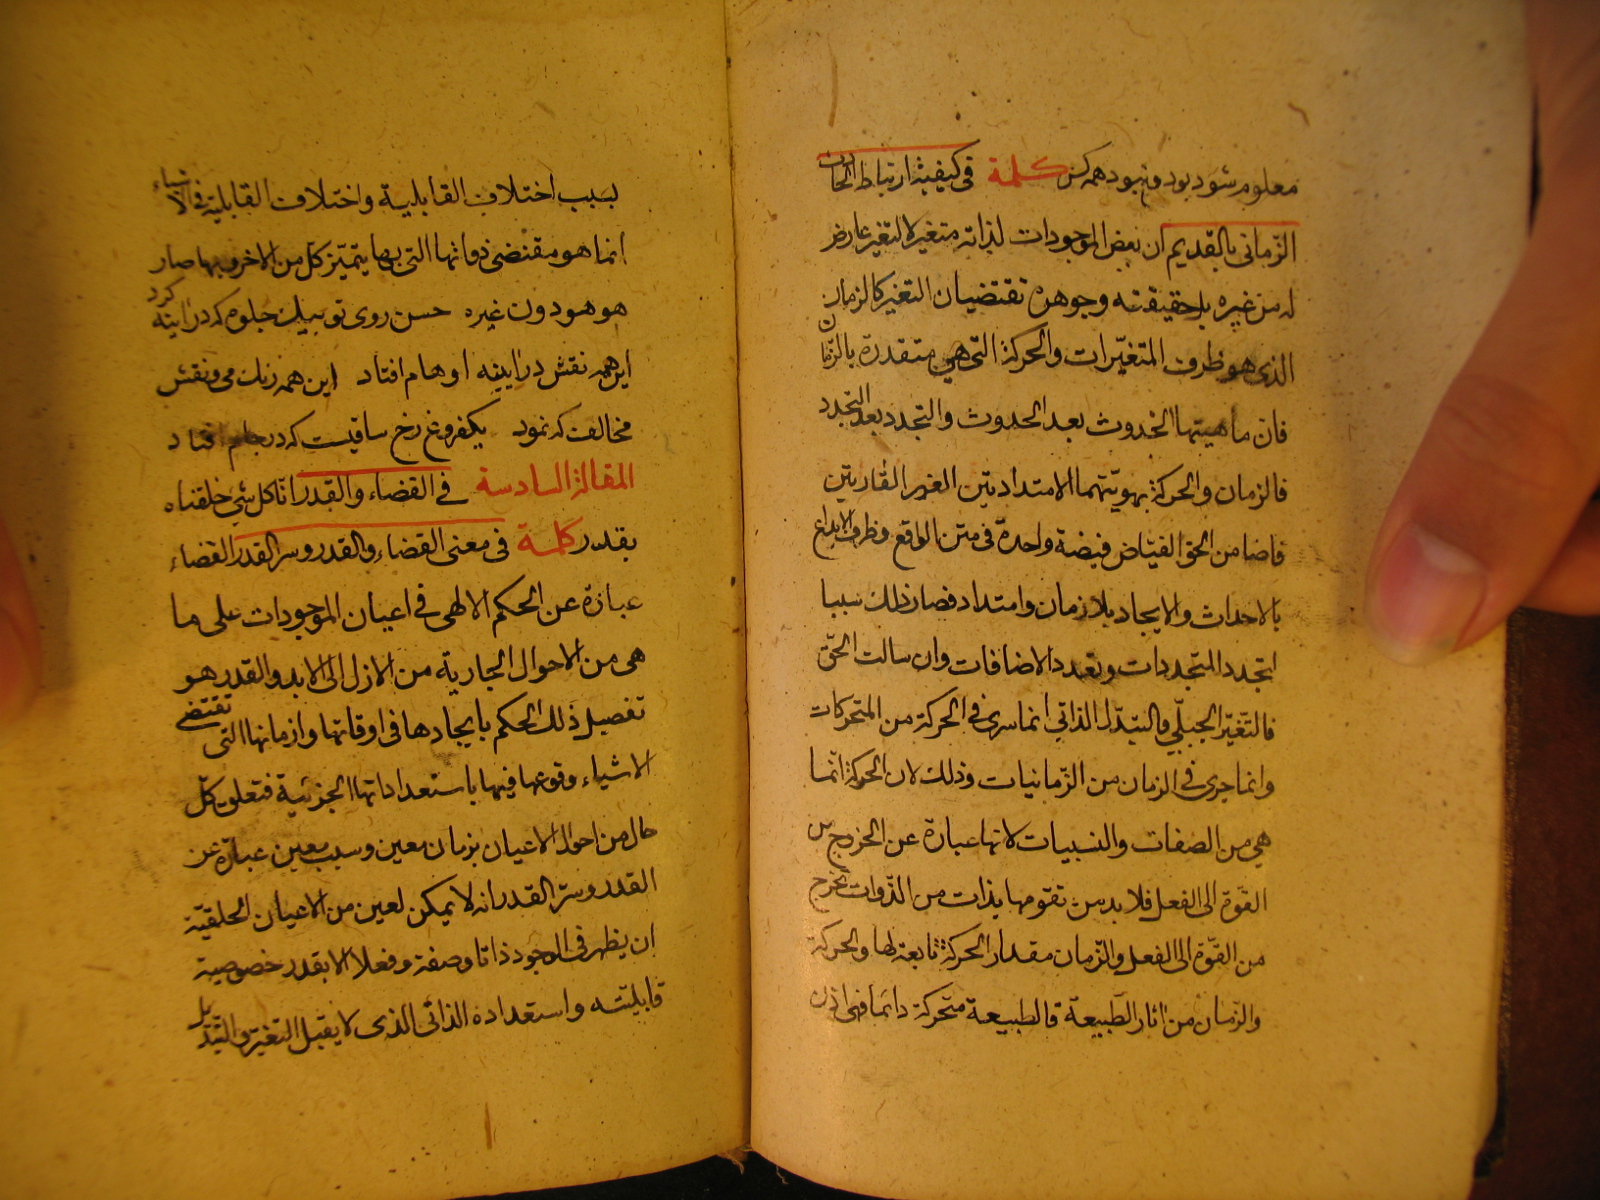 معلوم شود بود نبود همه کس كلمة في كيفية ارتباط الحادث
الزماني بالقديم ان بعض الموجودات لذاته متغير لا التغير عارض
له من غيره بل حقيقته وجوهره تقتضيان التغير كالزمان
الذي هو ظرف المتغيّرات والحركة التي هي متقدرة بالزمان
فان ماهيتها الحدوث بعد الحدوث والتجدد بعد التجدد
فالزمان والحركة بهويتهما الامتداديتين الغير القارتين
فاضا من الحق الفيّاض فيضة واحدة في متن الواقع وظرف الابداع
بالاحداث والايجاد بلا زمان وامتداد فصار ذلك سببا
لتجدد المتجددات وتعدد الاضافات وان سالت الحق
فالتّغيّر الجبلّي والتبدّل الذاتي انما سرى في الحركة من المتحركات
وانما جرى في الزمان من الزمانيات وذلك لان الحركة انما
هي من الصفات والنسبيات لانها عبارة عن الخروج من
القوة الى الفعل فلا بد من تقومها بذات من الذوات تخرج
من القوّة الى الفعل والزمان مقدار الحركة تابعة لها والحركة
والزمان من اثار الطّبيعة فالطبيعة متحركة دائما فهي اذن
بسبب اختلاف القابلية واختلاف القابلية في الاشياء
انما هو مقتضى ذواتها التي بها يتميّز كل من الاخر وبها صار
هو هو دون غيره حسن روی تو بیک جلوه که در آینه کرد
این همه نقش در آینه اوهام افتاد این همه رنک می و نقش
مخالف که نمود یکفروغ رخ ساقیست که در جام افتاد
المقالة السادسة في القضاء والقدر انا كل شئ خلقناه
بقدر كلمة في معنى القضاء والقدر وسر القدر القضاء
عبارة عن الحكم الالهي في اعيان الموجودات على ما
هي من الاحوال الجارية من الازل الى الابد والقدر هو
تفصيل ذلك الحكم بايجادها في اوقاتها وازمانها التي تقتضي
الاشياء وقوعها فيها باستعداداتها الجزئية فتعلق كلّ
حال من احوال الاعيان بزمان معين وسبب معين عبارة عن
القدر وسرّ القدر انه لا يمكن لعين من الاعيان الخلقيّة
ان يظهر في الوجود ذاتا وصفة وفعلا الا بقدر خصوصية
قابليته واستعداده الذاتي الذي لا يقبل التغير والتبدّل